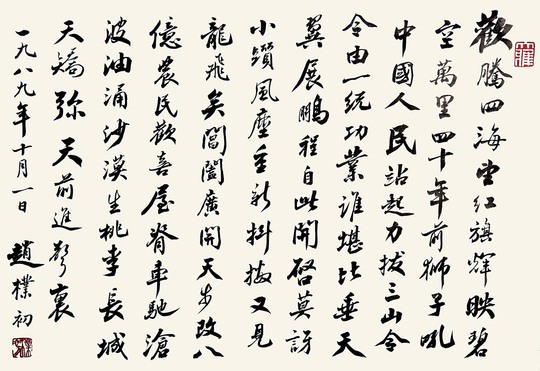 歡騰四海望紅旗輝映碧
空萬里四十年前獅子吼
中國人民站起力拔三山令
令由一統功業誰堪比垂天
翼展鵬程自此開啓莫訝
小躓風塵重新抖擻又見
龍飛矣閶闔廣開天步改八
億農民歡喜屋脊車馳滄
波油涌沙漠生桃李長城
夭矯弥天前進聲裏
一九八九年十月一日 趙樸初